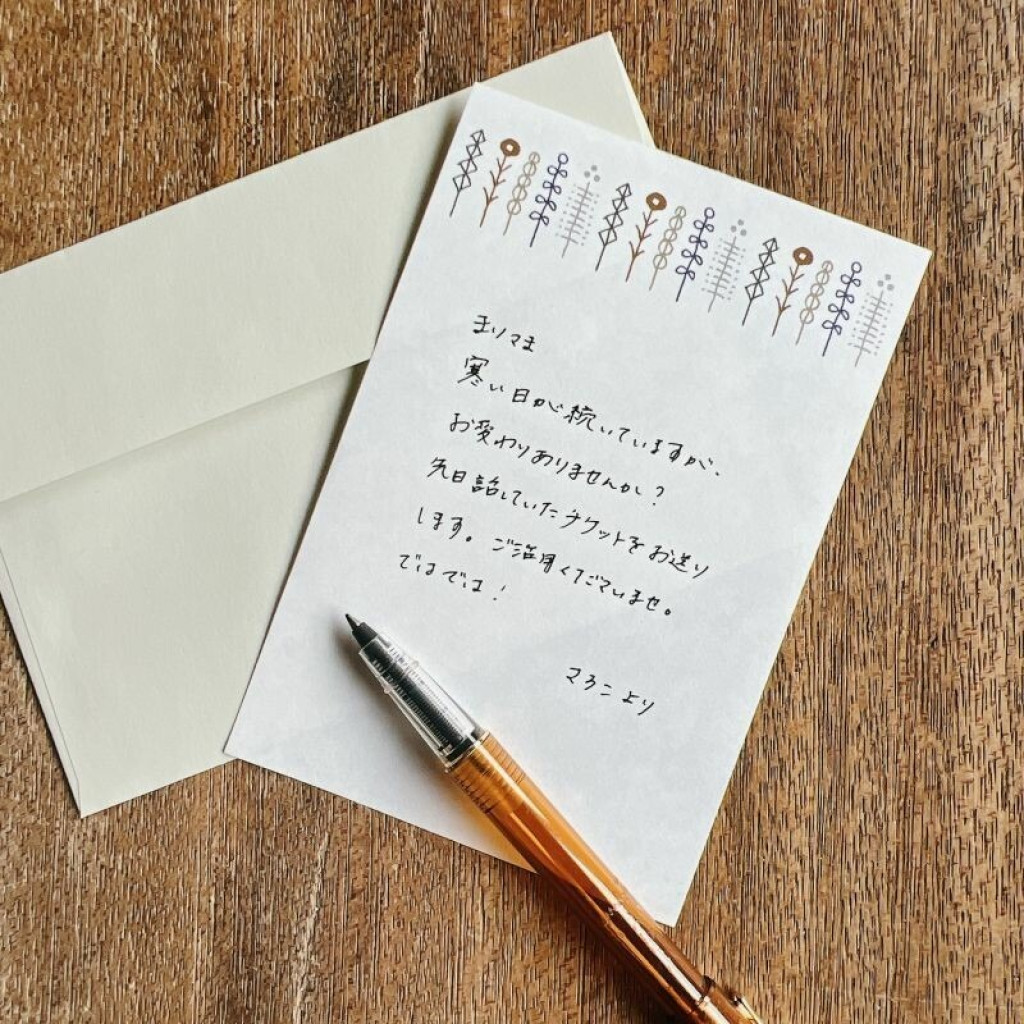 まりさま
寒い日が続いていますが、
お変わりありませんか？
先日話していたチケットをお送り
します。ご活用くださいませ。
ではでは！
マロンより